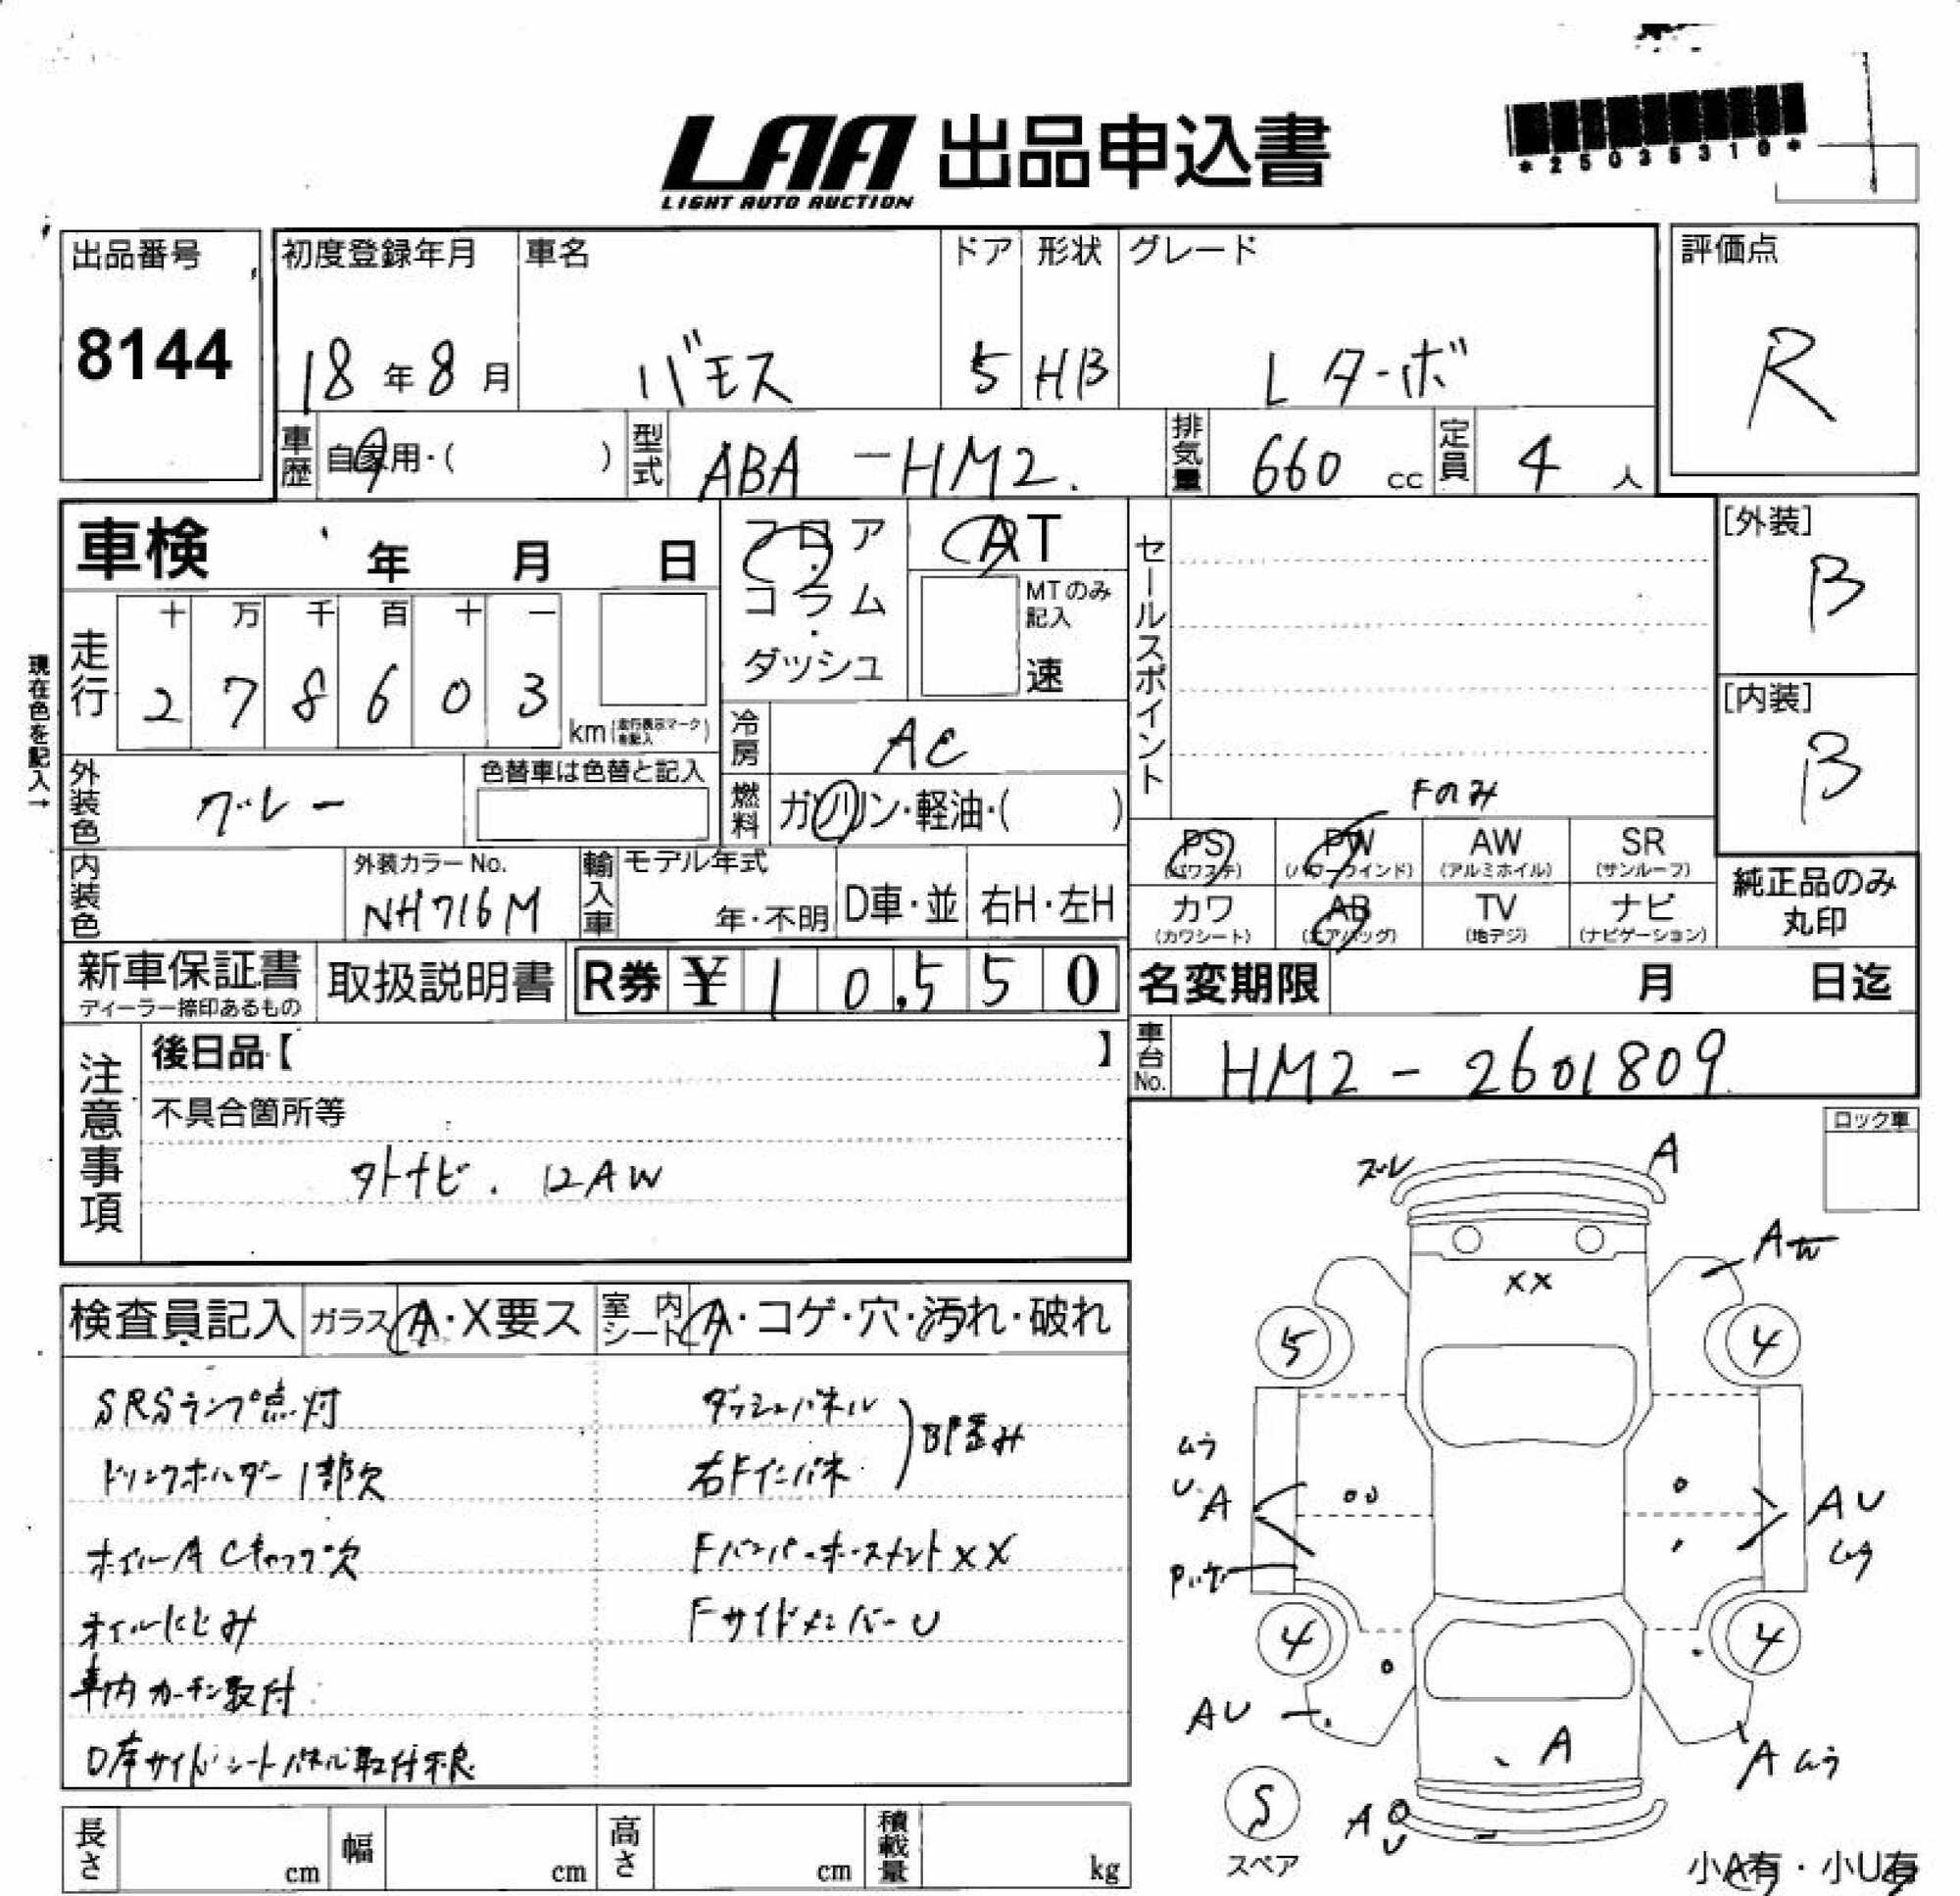 LAA 出品申込書
LIGHT AUTO AUCTION
*25035310*
出品番号
8144
初度登録年月
18年8月
車名
バモス
ドア
5
形状
HB
グレード
Lターボ
評価点
R
車歴
自家用・( )
型式
ABA-HM2.
排気量
660 cc
定員
4人
車検 年 月 日
フロア・コラム・ダッシュ
AT
MTのみ記入
速
セールスポイント
Fのみ
[外装]
B
[内装]
B
現在色を記入→
走行
十 万 千 百 十 一
2 7 8 6 0 3
km(走行表示マークを記入)
冷房
AC
外装色
グレー
色替車は色替と記入
燃料
ガソリン・軽油・( )
PS (パワステ)
PW (パワーウインド)
AW (アルミホイル)
SR (サンルーフ)
カワ (カワシート)
AB (エアバッグ)
TV (地デジ)
ナビ (ナビゲーション)
純正品のみ丸印
内装色
外装カラーNo.
NH716M
輸入車
モデル年式
年・不明
D車・並
右H・左H
新車保証書
ディーラー捺印あるもの
取扱説明書
R券 ¥ 10,550
名変期限 月 日迄
車台No.
HM2-2601809
注意事項
後日品【 】
不具合箇所等
外ナビ. 12AW
ロック車
検査員記入
ガラス A・X要ス
室内シート A・コゲ・穴・汚れ・破れ
SRSランプ点灯
ドリンクホルダー1部欠
ホイールCキャップ欠
オイルにじみ
車内カーテン取付
D席サイドシートパネル取付不良
ダッシュパネル
右Fインパネ
部歪み
FバンパーホースメントXX
FサイドメンバーU
ズレ
A
A
XX
5
4
ムラ
U A
AU
ムラ
4
4
AU
A
A ムラ
S
スペア
A U
小A有・小U有
長さ cm
幅 cm
高さ cm
積載量 kg